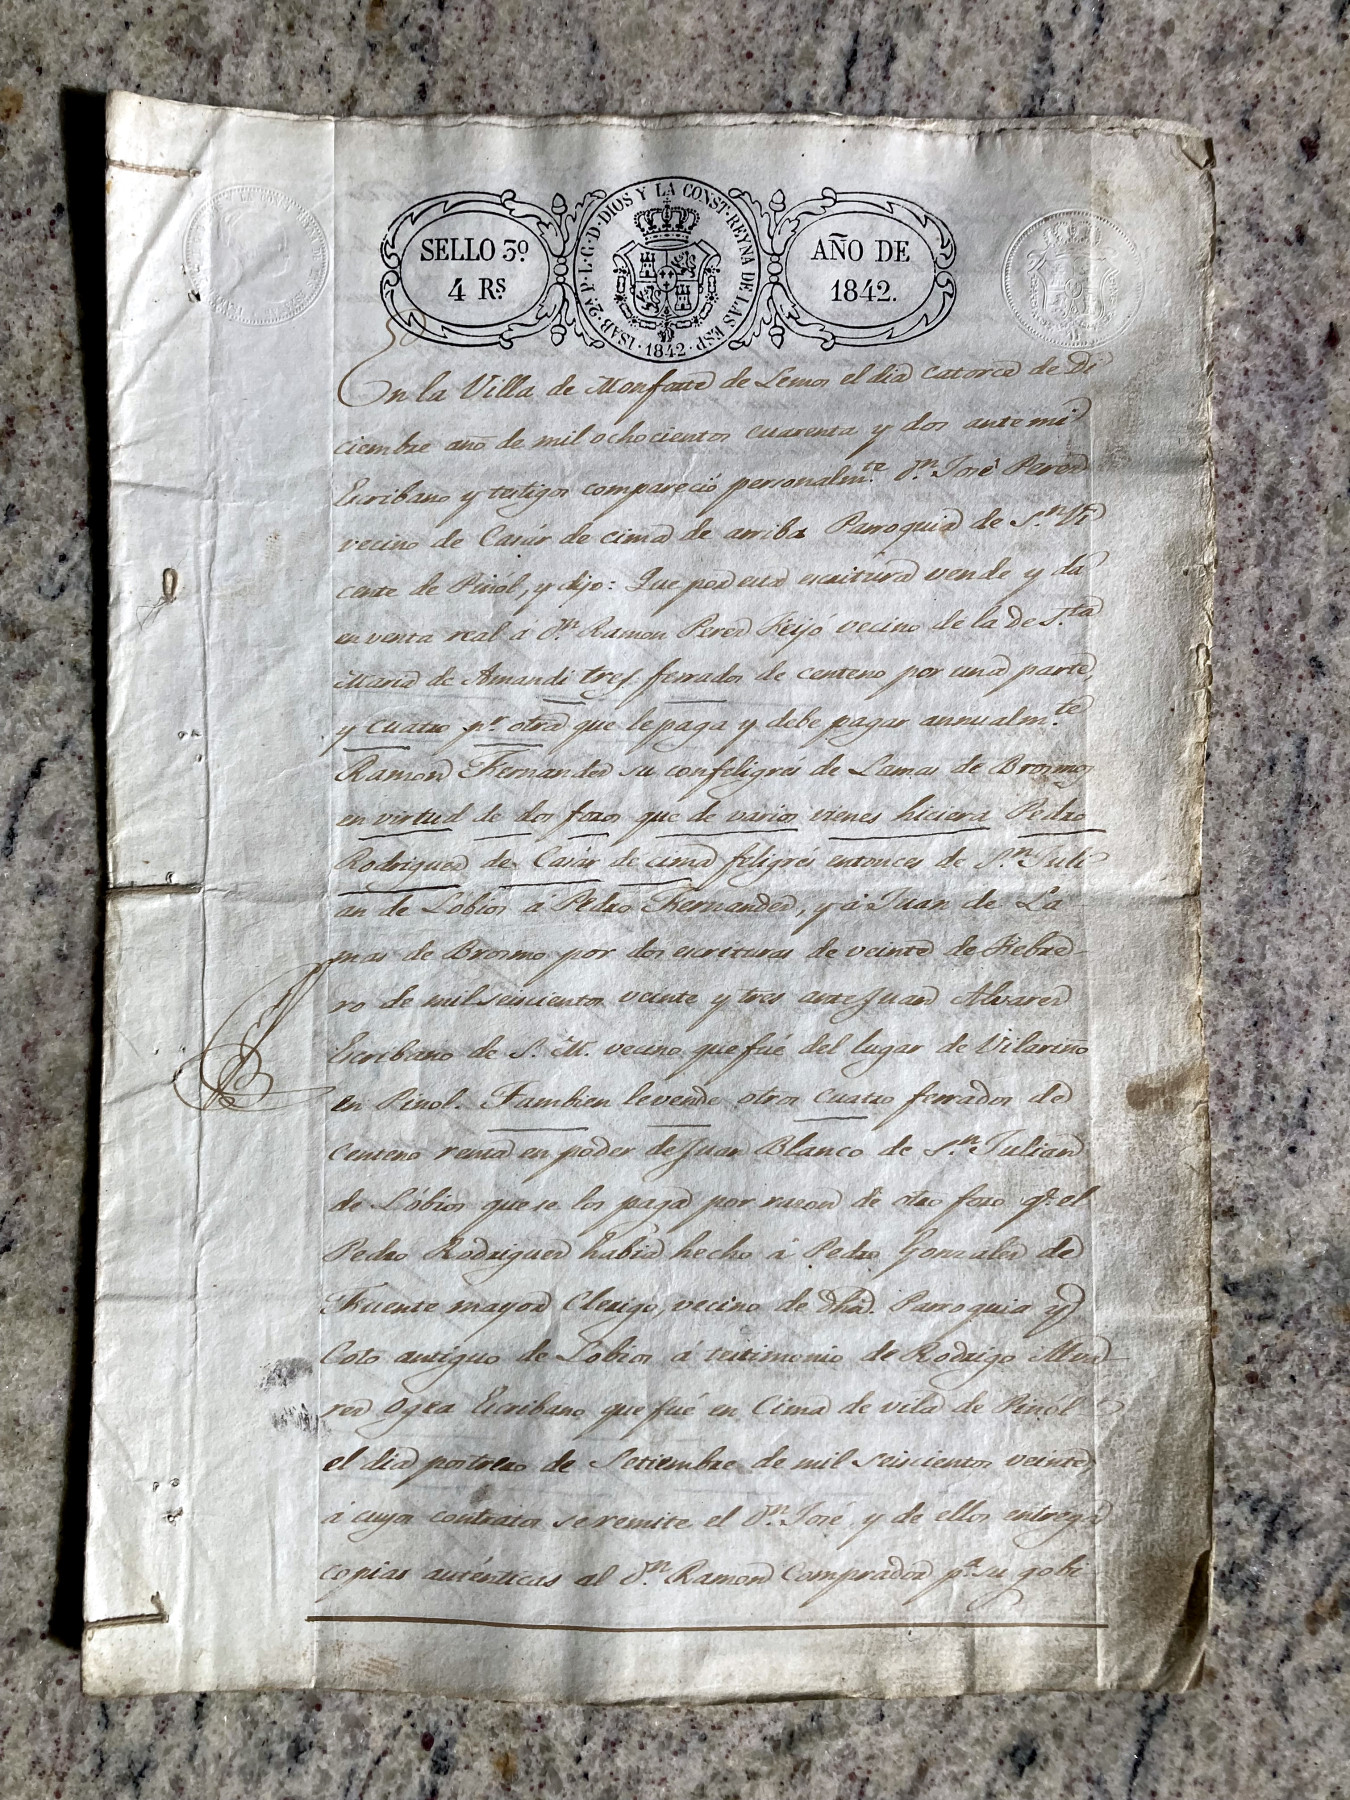 SELLO 3º
4 Rs
ISAB. 2ª P. L. G. D. DIOS Y LA CONST. REYNA DE LAS ESP.
1842
AÑO DE
1842.
En la Villa de Monforte de Lemos el dia catorce de Di
ciembre año de mil ochocientos cuarenta y dos ante mi
Escribano y testigos compareció personalmte. Dn. José Perez
vecino de Casár de cima de arriba Parroquia de Sn. Vi
cente de Pinol, y dijo: Que por esta escritura vende y da
en venta real á Dn. Ramon Perez Feijó vecino de la de Sta
Maria de Amandi tres ferrados de centeno por una parte,
y cuatro pr. otra que le paga y debe pagar annualmte
Ramon Fernandez su confeligrés de Lamas de Brosmos
en virtud de dos foros que de varios vienes hiciera Pedro
Rodriguez de Casár de cima feligrés entonces de Sn. Juli
an de Lobios á Pedro Fernandez, y á Juan de La
mas de Brosmo por dos escrituras de veinte de Febre-
ro de mil seiscientos veinte y tres ante Juan Alvarez
Escribano de S. M. vecino que fué del lugar de Vilariño
en Pinol. Tambien le vende otros cuatro ferrados de
centeno renta en poder de Juan Blanco de Sn. Julian
de Lóbios que se los paga por razon de otro foro qe. el
Pedro Rodriguez habia hecho á Pedro Gonzalez de
Fuente mayor Clerigo, vecino de dha. Parroquia y
Coto antiguo de Lobios á testimonio de Rodrigo Alva-
rez Ogea Escribano que fué en Cima de vila de Pinól
el dia postrero de Setiembre de mil seiscientos veinte,
á cuyos contratos se remite el Dn. José, y de ellos entrega
copias auténticas al Dn. Ramon Comprador pa. su gobi-